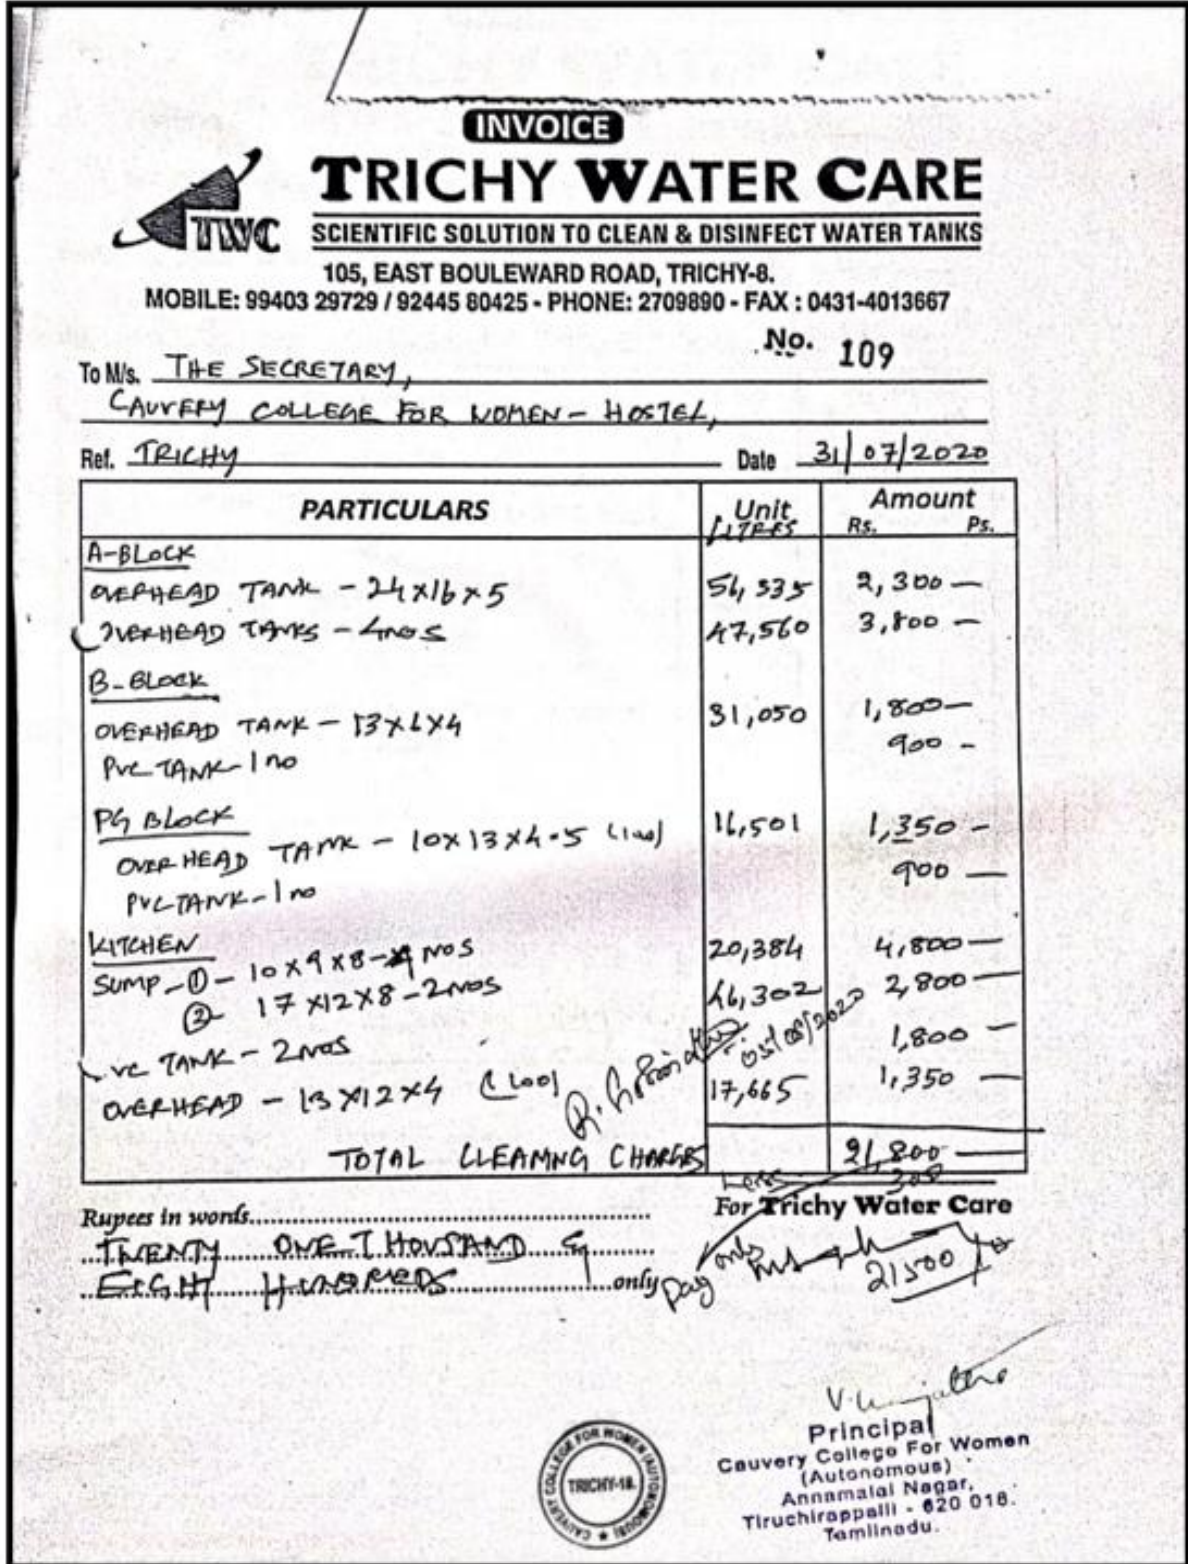 INVOICE
TWC
TRICHY WATER CARE
SCIENTIFIC SOLUTION TO CLEAN & DISINFECT WATER TANKS
105, EAST BOULEWARD ROAD, TRICHY-8.
MOBILE: 99403 29729 / 92445 80425 - PHONE: 2709890 - FAX : 0431-4013667
No. 109
To M/s. THE SECRETARY,
CAUVERY COLLEGE FOR WOMEN - HOSTEL,
Ref. TRICHY Date 31/07/2020
PARTICULARS Unit Amount
LITRES Rs. Ps.
A-BLOCK
OVERHEAD TANK - 24x16x5 54,335 2,300 —
OVERHEAD TANKS - 4NOS 47,560 3,800 —
B-BLOCK
OVERHEAD TANK - 13x6x4 31,050 1,800 —
PVC TANK - 1 no 900 -
PG BLOCK
OVER HEAD TANK - 10x13x4.5 16,501 1,350 -
PVC TANK - 1 no 900 —
KITCHEN
SUMP - ① - 10x9x8 - NOS 20,384 4,800 —
② 17x12x8 - 2NOS 46,302 2,800 —
VC TANK - 2NOS 1,800 —
OVERHEAD - 13x12x4 17,665 1,350 —
05/08/2020
TOTAL CLEANING CHARGES 21,800 —
Less 300
Rupees in words For Trichy Water Care
TWENTY ONE THOUSAND &
EIGHT HUNDREDS only
Pay only 21500
Principal
Cauvery College For Women
(Autonomous)
Annamalai Nagar,
Tiruchirappalli - 620 018.
Tamilnadu.
CAUVERY COLLEGE FOR WOMEN (AUTONOMOUS)
TRICHY-18.